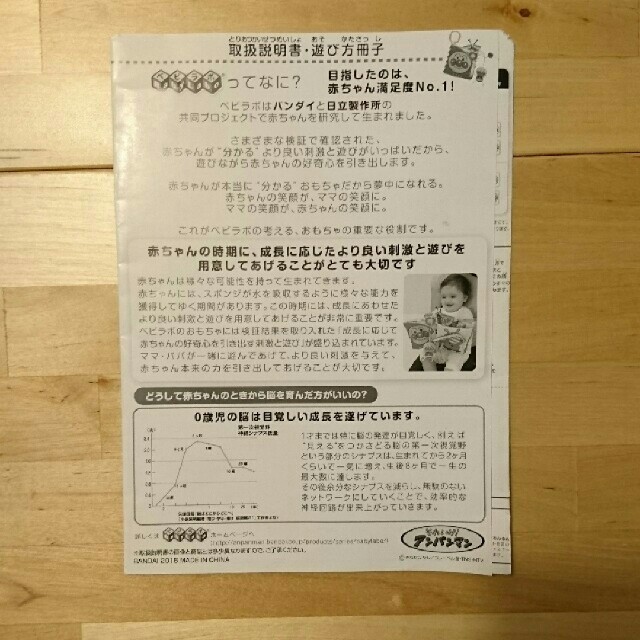 とりあつかいせつめいしょ あそ かたさっし
取扱説明書・遊び方冊子
ベビラボってなに？
目指したのは、
赤ちゃん満足度No.1!
ベビラボはバンダイと日立製作所の
共同プロジェクトで赤ちゃんを研究して生まれました。
さまざまな検証で確認された、
赤ちゃんが“分かる”より良い刺激と遊びがいっぱいだから、
遊びながら赤ちゃんの好奇心を引き出します。
赤ちゃんが本当に“分かる”おもちゃだから夢中になれる。
赤ちゃんの笑顔が、ママの笑顔に。
ママの笑顔が、赤ちゃんの笑顔に。
これがベビラボの考える、おもちゃの重要な役割です。
赤ちゃんの時期に、成長に応じたより良い刺激と遊びを
用意してあげることがとても大切です
赤ちゃんは様々な可能性を持って生まれてきます。
赤ちゃんには、スポンジが水を吸収するように様々な能力を
獲得してゆく期間があります。この時期には、成長にあわせた
より良い刺激と遊びを用意してあげることが非常に重要です。
ベビラボのおもちゃには検証結果を取り入れた「成長に応じて
赤ちゃんの好奇心を引き出す刺激と遊び」が盛り込まれています。
ママ・パパが一緒に遊んであげて、より良い刺激を与えて、
赤ちゃん本来の力を引き出してあげることが大切です。
どうして赤ちゃんのときから脳を育んだ方がいいの？
0歳児の脳は目覚しい成長を遂げています。
第一次視覚野
神経シナプス数量
1才までは特に脳の発達が目覚しく、例えば
“見える”をつかさどる脳の第一次視覚野
という部分のシナプスは、生まれてから2ヶ月
くらいで一気に増え、生後8ヶ月で一生の
最大数に達します。
その後余分なシナプスを減らし、無駄のない
ネットワークにしていくことで、効率的な
神経回路が出来上がっていきます。
詳しくは ベビラボ ホームページへ
それいけ!アンパンマン
※取扱説明書の画像と商品とは多少異なりますので、ご了承ください。
BANDAI 2015 MADE IN CHINA